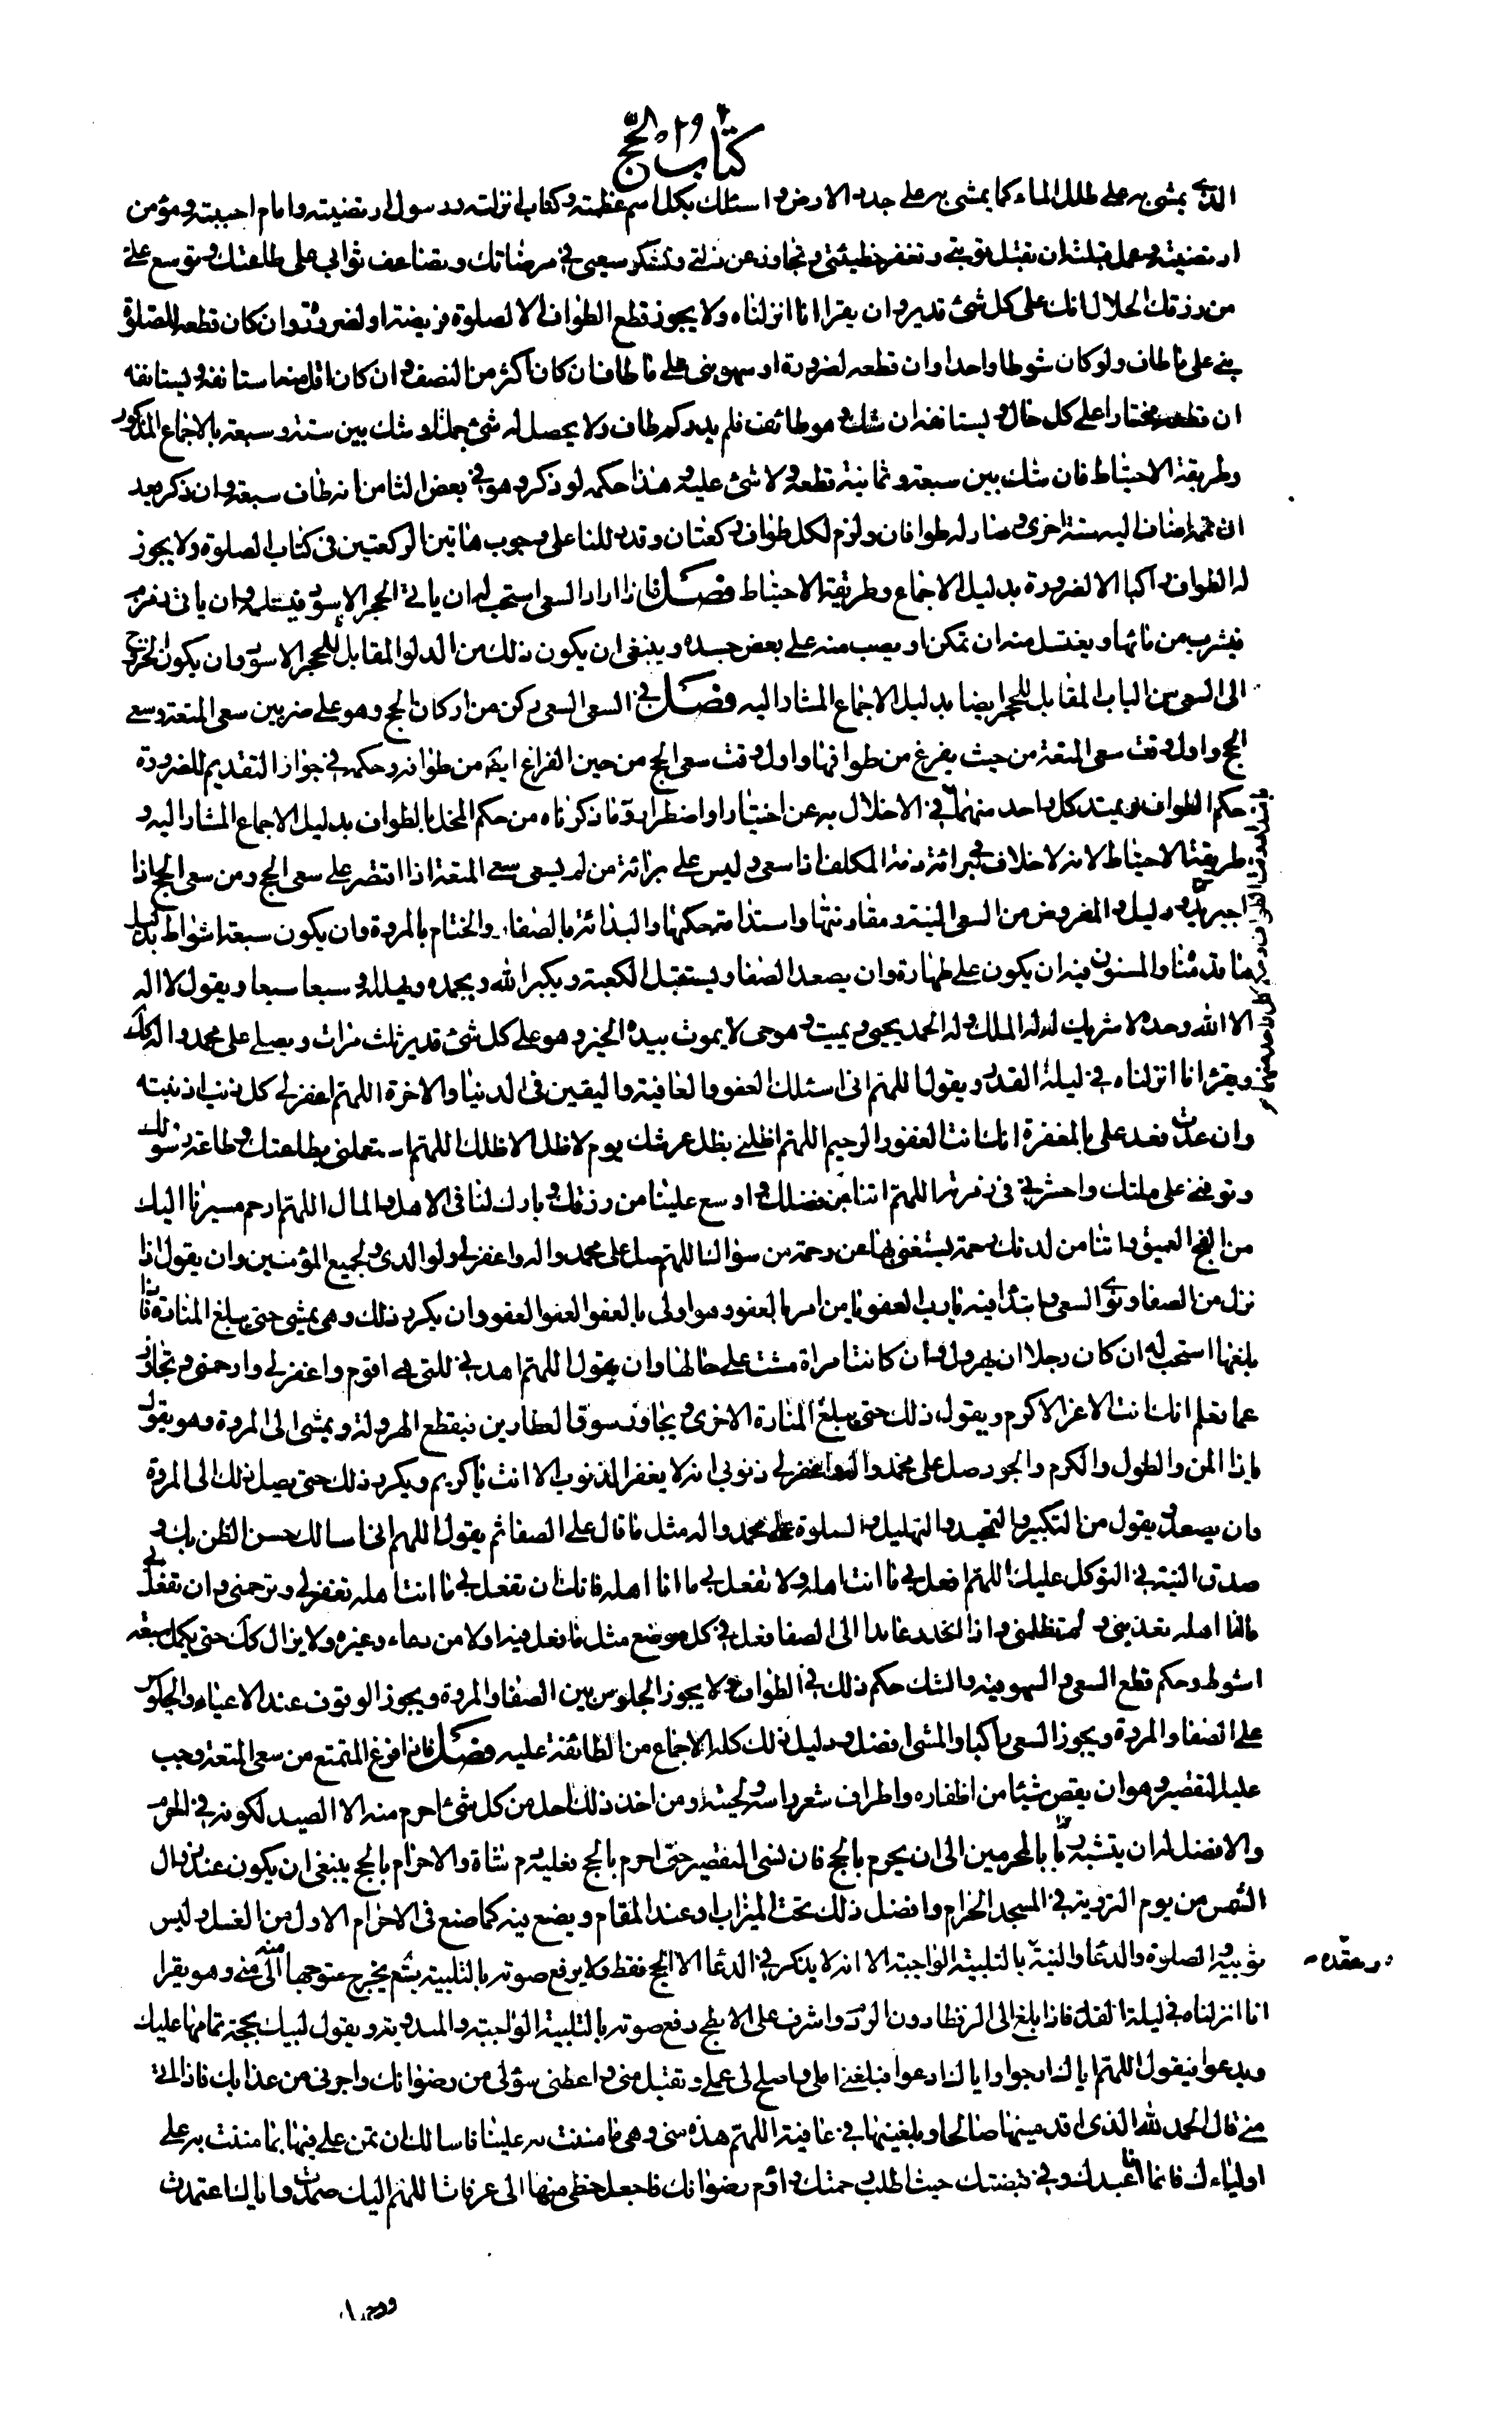 كتاب الحج
الذي يمشي به على طلل الماء كما يمشي به على جدد الارض و اسئلك بكل اسم عظمته وكتاب انزلته ورسول ارتضيته وامام اجبته ومؤمن
ارتضيته وعمل قبلته ان تقبل توبتي و تغفر خطيئتي و تجاوز عن زلتي و تشكر سعيي في مرضاتك و تضاعف ثوابي على طاعتك و توسع علي
من رزقك الحلال انك على كل شئ قدير و ان يقرا انا انزلناه ولا يجوز قطع الطواف الا لصلوة فريضة او لضرورة وان كان قطعه للصلوة
بني على ما طاف ولو كان شوطا واحدا وان قطعه لضرورة او سهو بنى على ما طاف ان كان اكثر من النصف و ان كان اقل منه استانفه ويستانفه
ان قطعه مختارا على كل حال و يستانفه ان شك و هو طائف فلم يدر كم طاف ولا يحصل له شئ جملة او شك بين ستة و سبعة بالاجماع المذكور
وطريقة الاحتياط فان شك بين سبعة و ثمانية قطعه ولا شئ عليه هذا حكمه لو ذكر و هو في بعض الثامن انه طاف سبعة وان ذكر بعد
ان تممه اضاف اليه ستة اخرى و صار له طوافان ولزم لكل طواف ركعتان وقد دللنا على وجوب هاتين الركعتين في كتاب الصلوة ولا يجوز
له الطواف راكبا الا لضرورة بدليل الاجماع وطريقة الاحتياط فصل فاذا اراد السعي استحب له ان ياتي الحجر الاسود فيستلمه وان ياتي زمزم
فيشرب من مائها و يغتسل منه ان تمكن او يصب منه على بعض جسده وينبغي ان يكون ذلك من الدلو المقابل للحجر الاسود وان يكون الخروج
الى السعي من الباب المقابل للحجر ايضا بدليل الاجماع المشار اليه فصل في السعي السعي ركن من اركان الحج وهو على ضربين سعي المتعة وسعي
الحج واول وقت سعي المتعة من حيث يفرغ من طوافها واول وقت سعي الحج من حين الفراغ ايضا من طوافه وحكمه في جواز التقديم للضرورة
حكم الطواف ويمتد كل واحد منهما في الاخلال به عن اختيار او اضطرار ما ذكرناه من حكم المخل بالطواف بدليل الاجماع المشار اليه و
طريقة الاحتياط لانه لا خلاف في برائة ذمة المكلف اذا سعى وليس على برائة من لم يسعى سعي المتعة اذا اقتصر على سعي الحج ومن سعي الحج اذا
اجير دليل والمفروض من السعي النية و مقارنتها واستدامة حكمها والبدائة بالصفاء والختام بالمروة وان يكون سبعة اشواط بدليل
ما قدمنا والمسنون فيه ان يكون على طهارة وان يصعد الصفا ويستقبل الكعبة و يكبر الله و يحمده و يهلله سبعا سبعا و يقول لا اله
الا الله وحده لا شريك له له الملك وله الحمد يحيي و يميت و هو حي لا يموت بيده الخير و هو على كل شئ قدير ثلث مرات و يصلي على محمد واله كذلك
ويقرء انا انزلناه في ليلة القدر و يقول اللهم اني اسئلك العفو والعافية واليقين في الدنيا والاخرة اللهم اغفر لي كل ذنب اذنبته
وان عدت فعد علي بالمغفرة انك انت الغفور الرحيم اللهم اظلني بظل عرشك يوم لا ظل الا ظلك اللهم استعملني بطاعتك و طاعة رسولك
وتوفني على ملتك واحشرني في زمرته اللهم اتنا من فضلك و اوسع علينا من رزقك و بارك لنا في الاهل والمال اللهم ارحم مسيرنا اليك
من الفج العميق و اتنا من لدنك رحمة يستغني بها عن رحمة من سؤالنا اللهم صل على محمد واله واغفر لي ولوالدي ولجميع المؤمنين وان يقول اذا
نزل من الصفا ونوى السعي وابتدا فيه يا رب العفو يا من امر بالعفو وهو اولى بالعفو العفو العفو وان يكرر ذلك وهو يمشي حتى يبلغ المنارة فاذا
بلغها استحب له ان كان رجلا ان يهرول وان كانت امراة مشت على حالها وان يقول اللهم اهدني للتي هي اقوم واغفر لي وارحمني وتجاوز
عما تعلم انك انت الاعز الاكرم و يقول ذلك حتى يبلغ المنارة الاخرى و يجاوز سوق العطارين فيقطع الهرولة و يمشي الى المروة وهو يقول
يا ذا المن والطول والكرم والجود صل على محمد واله واغفر لي ذنوبي انه لا يغفر الذنوب الا انت يا كريم و يكرر ذلك حتى يصل ذلك الى المروة
وان يصعد و يقول من التكبير والتحميد والتهليل والصلوة على محمد واله مثل ما قال على الصفا ثم يقول اللهم اني اسالك حسن الظن بك و
صدق النية في التوكل عليك اللهم افعل بي ما انت اهله ولا تفعل بي ما انا اهله فانك ان تفعل بي ما انت اهله تغفر لي و ترحمني و ان تفعل بي
ما انا اهله تعذبني و لم تظلمني واذا انحدر عائدا الى الصفا فعل في كل موضع مثل ما فعل فيه اولا من دعاء وغيره ولا يزال كذلك حتى يكمل سبعة
اشوط وحكم قطع السعي و السهو فيه والشك حكم ذلك في الطواف ولا يجوز الجلوس بين الصفا والمروة ويجوز الوقوف عند الاعياء والجلوس
على الصفا والمروة ويجوز السعي راكبا والمشي افضل و دليل ذلك كله الاجماع من الطائفة عليه فصل فاذا فرغ المتمتع من سعي المتعة وجب
عليه التقصير وهو ان يقص شيئا من اظفاره واطراف شعر راسه و لحيته ومن اخذ ذلك احل من كل شئ احرم منه الا الصيد لكونه في الحرم
والافضل له ان يتشبه بالمحرمين الى ان يحرم بالحج فان نسي التقصير حتى احرم بالحج فعليه دم شاة والاحرام بالحج ينبغي ان يكون عند زوال
الشمس من يوم التروية في المسجد الحرام وافضل ذلك تحت الميزاب او عند المقام ويصنع فيه كما صنع في الاحرام الاول من الغسل ولبس
ثوبيه والصلوة والدعاء والنية بالتلبية الواجبة الا انه لا يذكر في الدعا الا الحج فقط ولا يرفع صوته بالتلبية ثم يخرج متوجها الى منى وهو يقرا
وعقده
انا انزلناه في ليلة القدر فاذا بلغ الى الرقطاء دون الردم واشرف على الابطح رفع صوته بالتلبية الواجبة والمندوبة و يقول لبيك بحجة تمامها عليك
ويدعوا فيقول اللهم اياك ارجوا واياك ادعوا فبلغني املي واصلح لي عملي وتقبل مني و اعطني سؤلي من رضوانك واجرني من عذابك فاذا اتى
منى قال الحمد لله الذي اقدمنيها صالحا و بلغنيها في عافية اللهم هذه منى وهي مما مننت به علينا فاسالك ان تمن علي فيها بما مننت به على
اولياءك فانما انا عبدك وفي قبضتك حيث اطلب رحمتك و اؤم رضوانك فاجعل حظي منها الى عرفات اللهم اليك صمدت و اياك اعتمدت